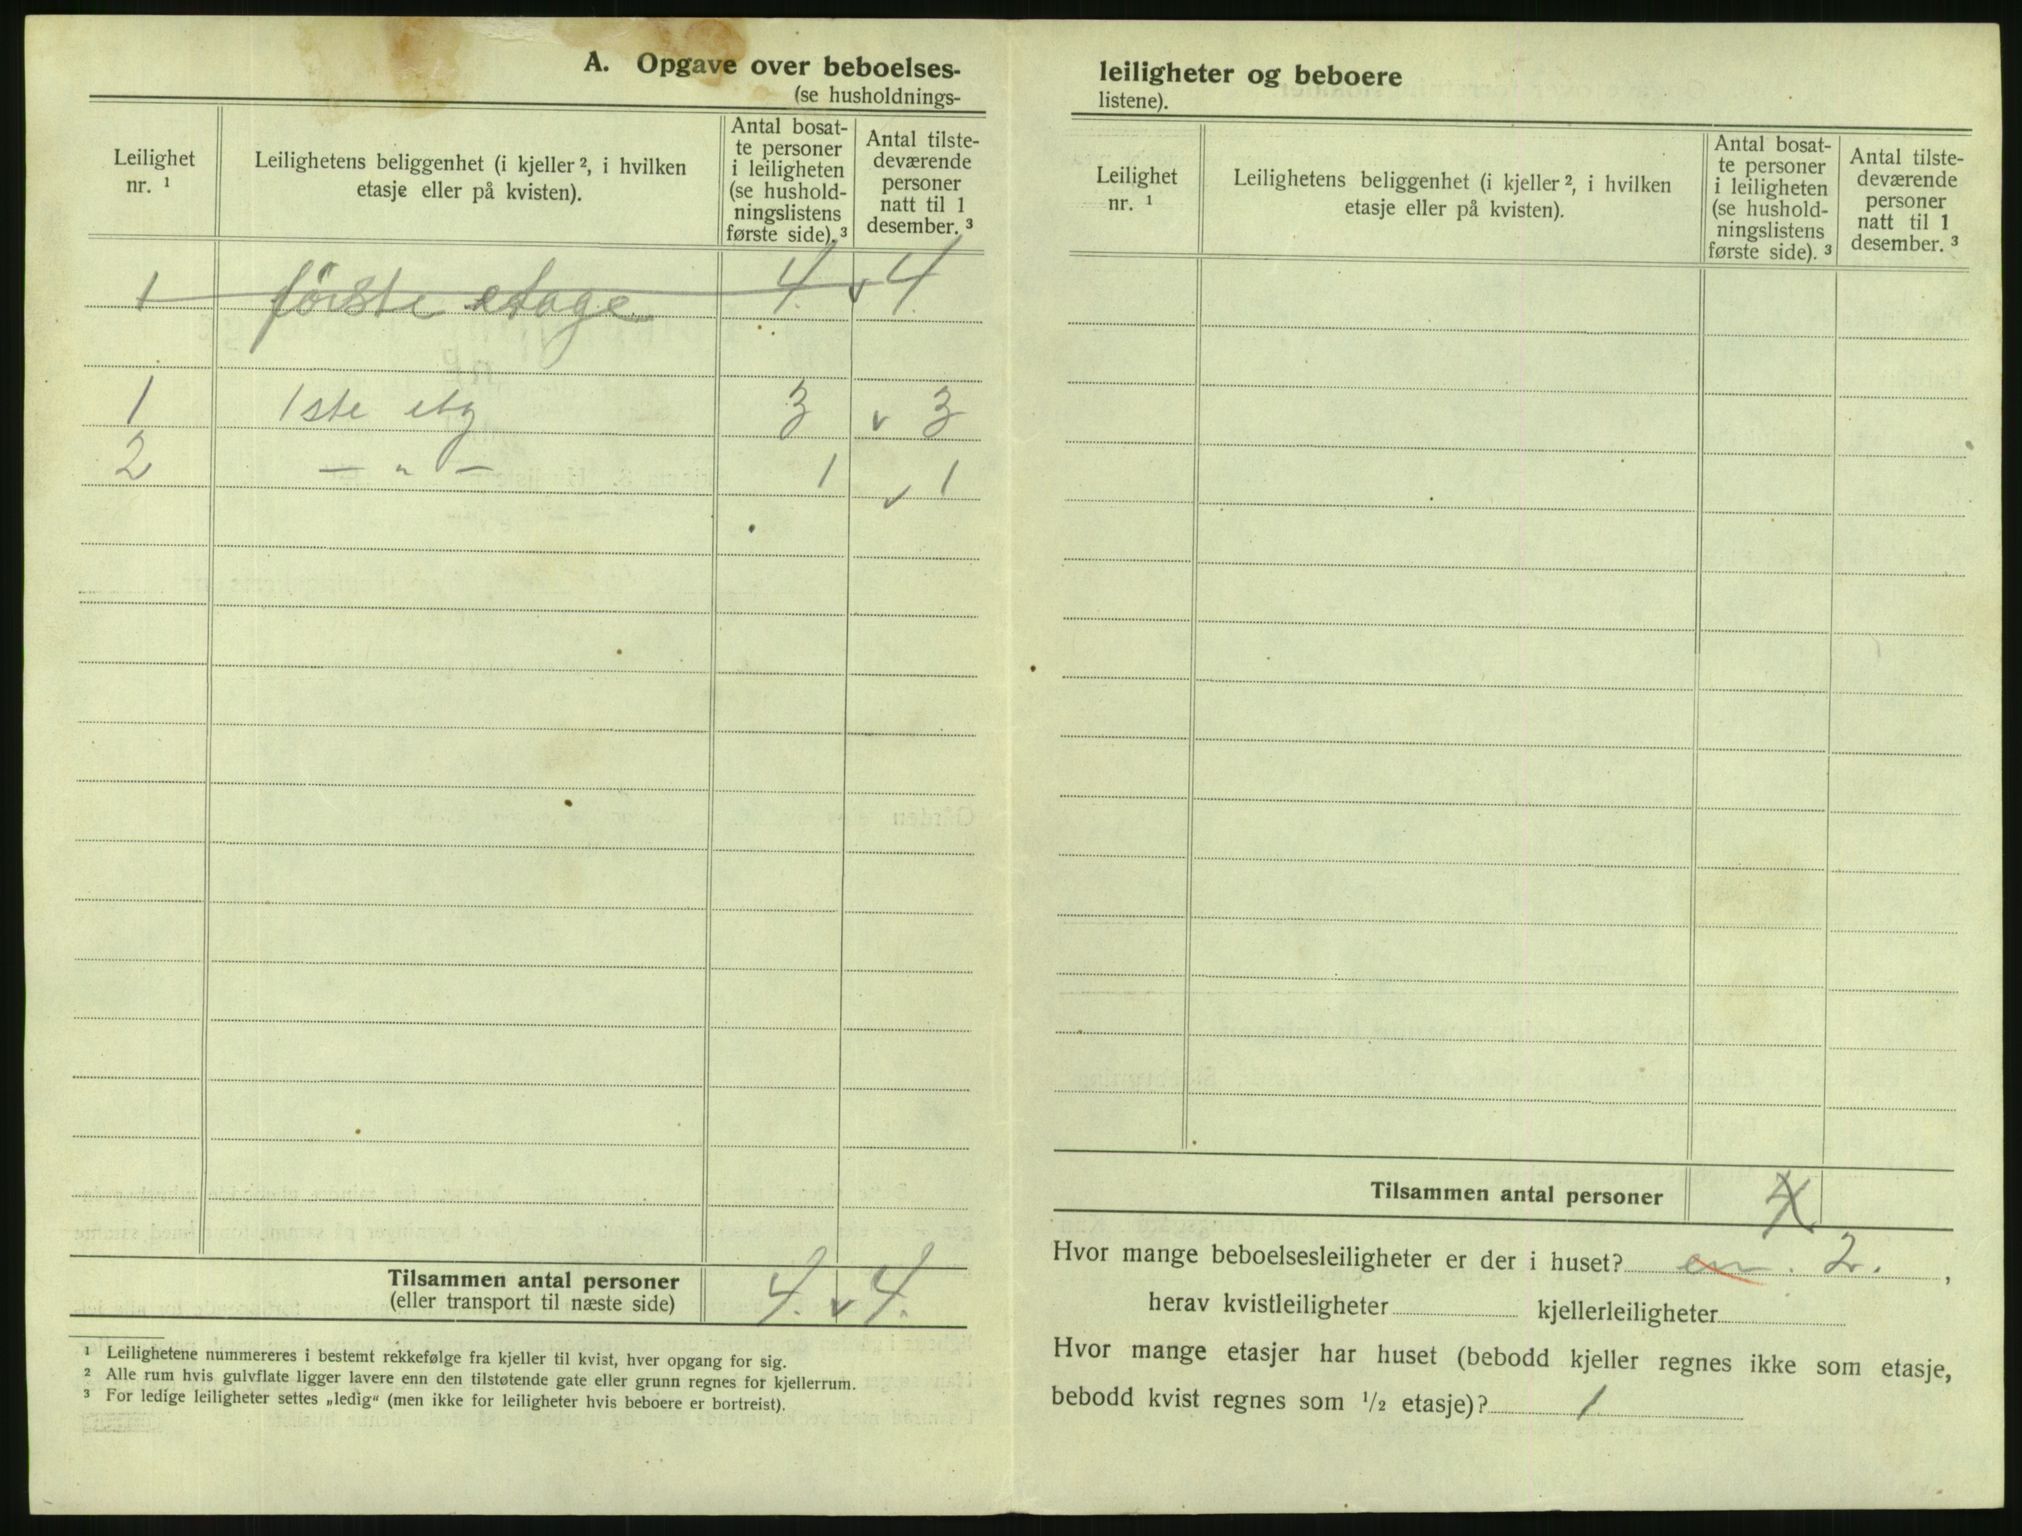 A. Opgave over beboelses-
(se husholdnings-
Leilighet nr. ¹
Leilighetens beliggenhet (i kjeller ², i hvilken etasje eller på kvisten).
Antal bosat-
te personer
i leiligheten
(se hushold-
ningslistens
første side). ³
Antal tilste-
deværende
personer
natt til 1
desember. ³
1 første etage 4. v 4.
1 1ste etg 3 v 3
2 — „ — 1 v 1
Tilsammen antal personer
(eller transport til næste side) 4. v 4.
¹ Leilighetene nummereres i bestemt rekkefølge fra kjeller til kvist, hver opgang for sig.
² Alle rum hvis gulvflate ligger lavere enn den tilstøtende gate eller grunn regnes for kjellerrum.
³ For ledige leiligheter settes „ledig“ (men ikke for leiligheter hvis beboere er bortreist).
leiligheter og beboere
listene).
Leilighet nr. ¹
Leilighetens beliggenhet (i kjeller ², i hvilken etasje eller på kvisten).
Antal bosat-
te personer
i leiligheten
(se hushold-
ningslistens
første side). ³
Antal tilste-
deværende
personer
natt til 1
desember. ³
Tilsammen antal personer 4
Hvor mange beboelsesleiligheter er der i huset? en. 2. ,
herav kvistleiligheter kjellerleiligheter
Hvor mange etasjer har huset (bebodd kjeller regnes ikke som etasje,
bebodd kvist regnes som ¹/₂ etasje)? 1